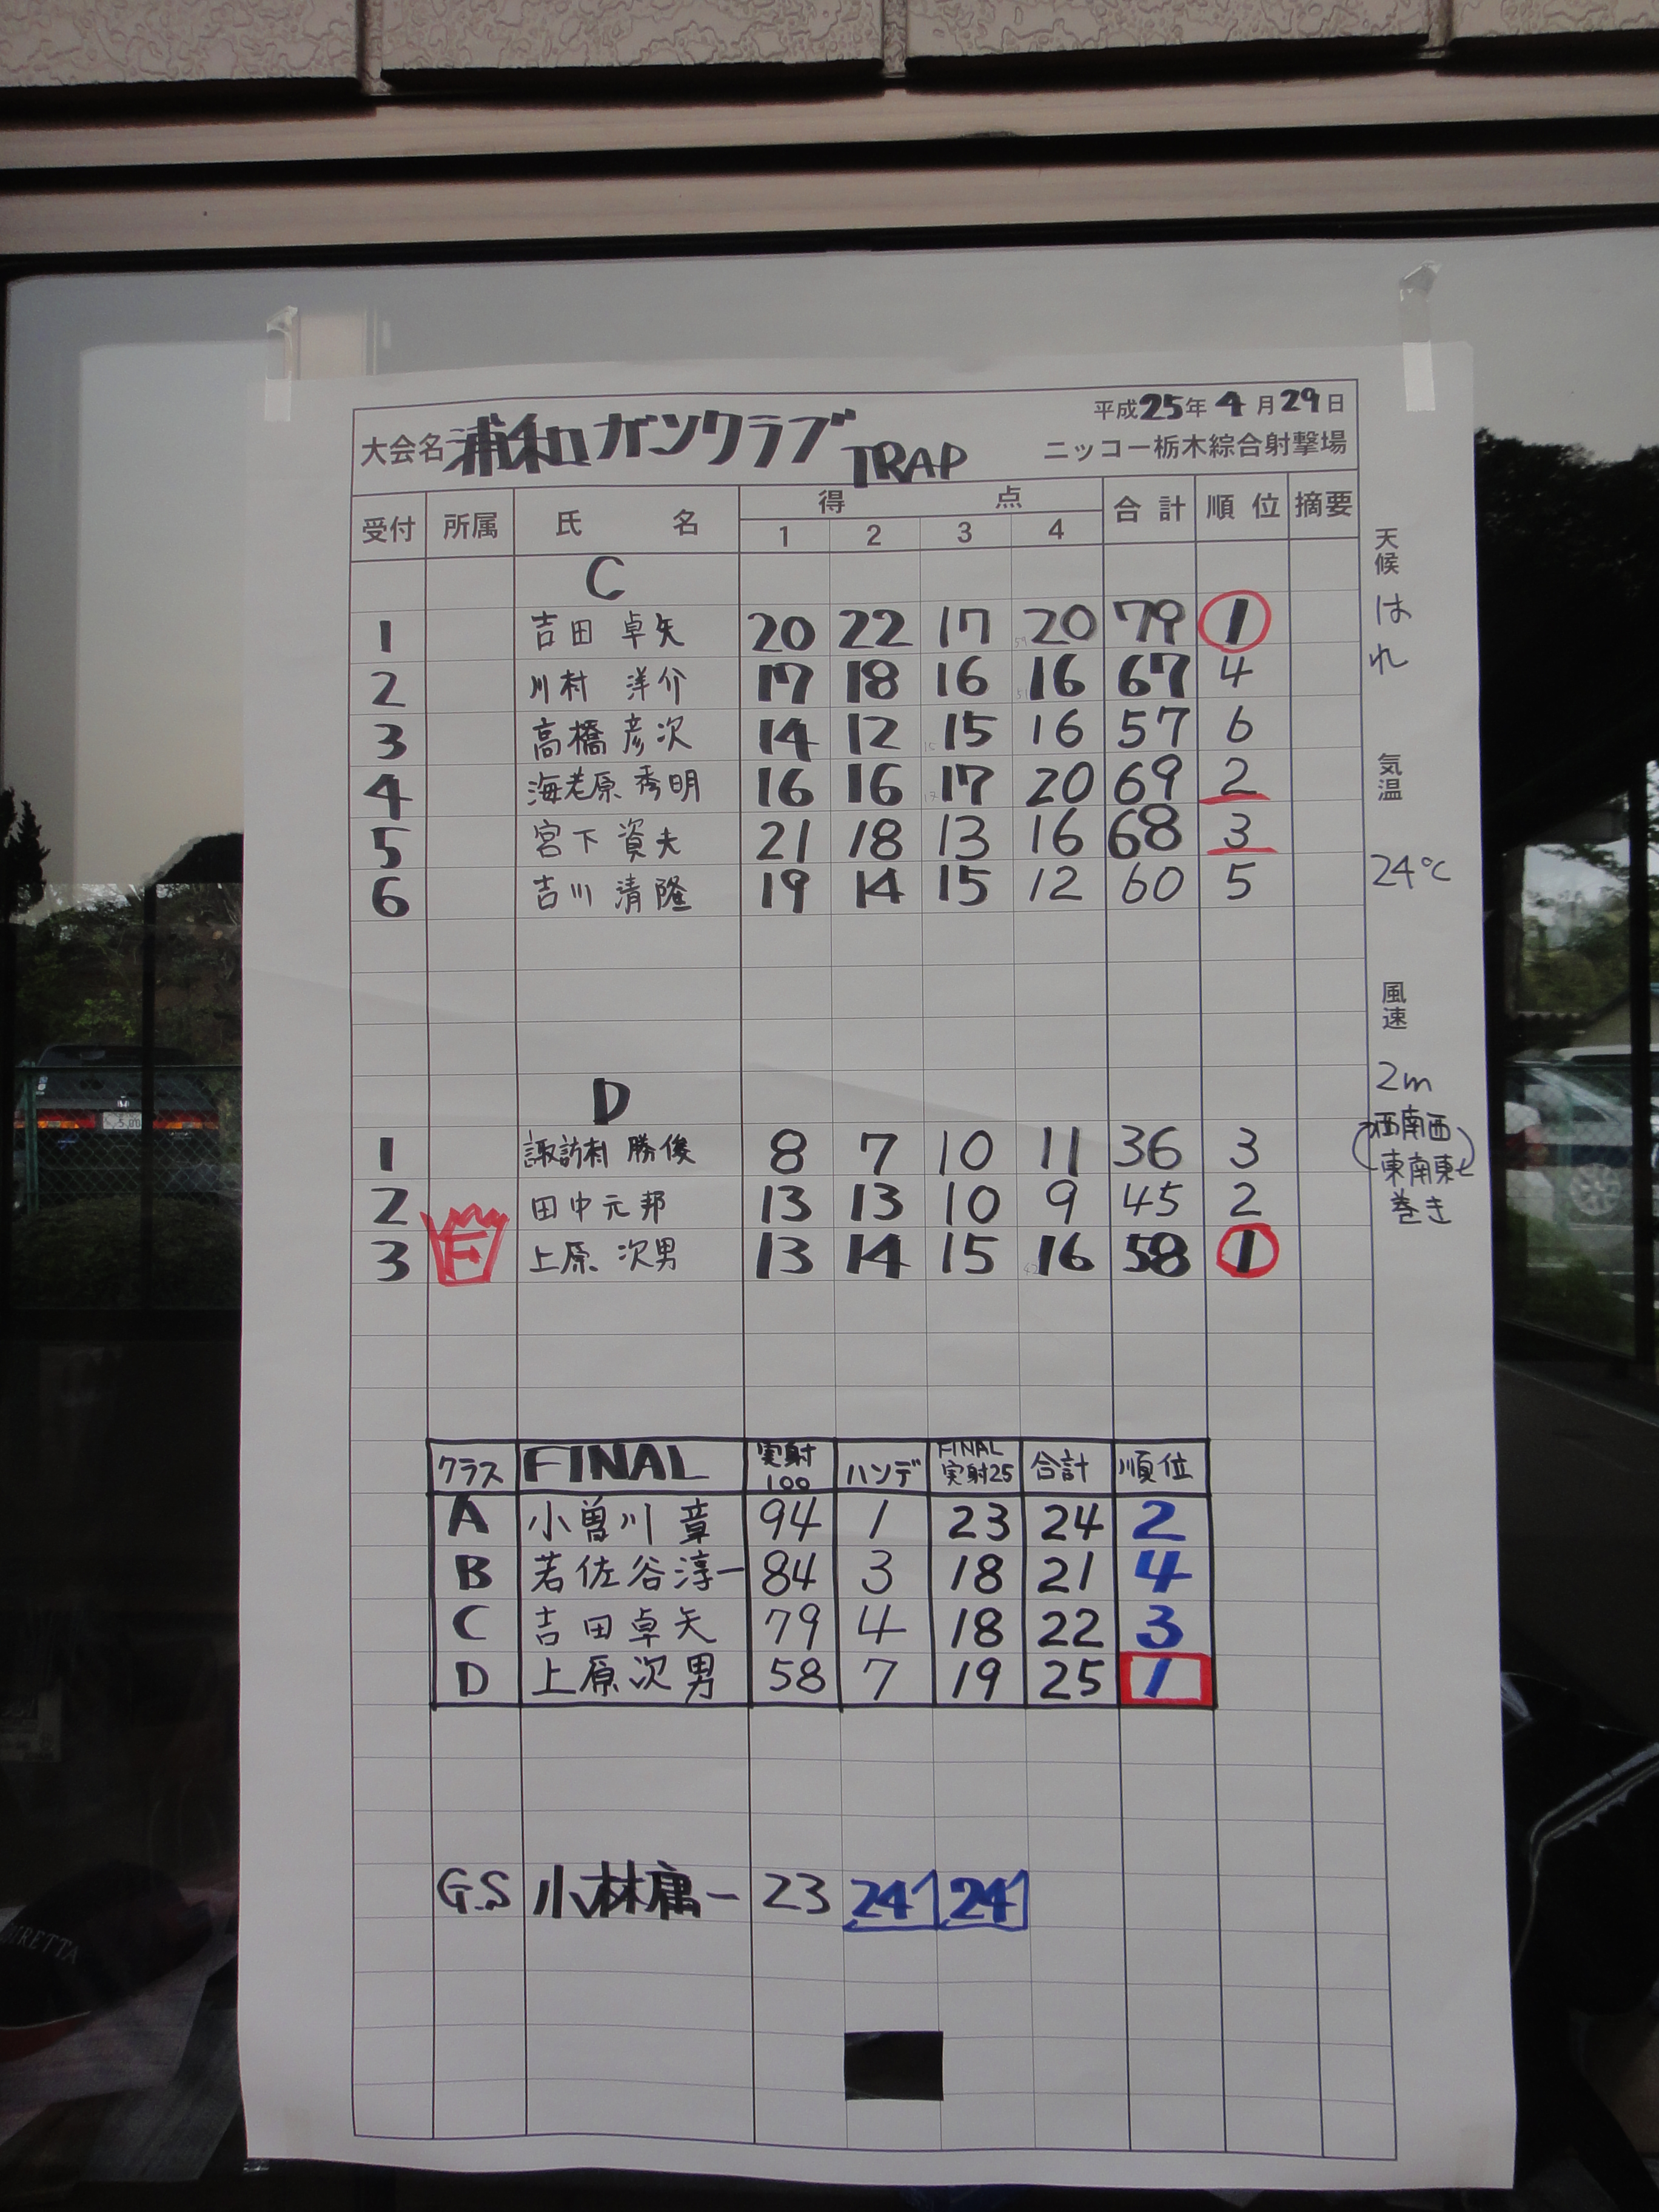 平成25年4月29日
大会名 浦和ガンクラブ TRAP
ニッコー栃木綜合射撃場
受付 所属 氏名 得点 合計 順位 摘要
1 2 3 4
C
1 吉田卓矢 20 22 17 20 79 1
2 川村洋介 17 18 16 16 67 4
3 高橋彦次 14 12 15 16 57 6
4 海老原秀明 16 16 17 20 69 2
5 宮下資夫 21 18 13 16 68 3
6 吉川清隆 19 14 15 12 60 5
D
1 諏訪村勝俊 8 7 10 11 36 3
2 田中元邦 13 13 10 9 45 2
3 F 上原次男 13 14 15 16 58 1
クラス FINAL 実射100 ハンデ FINAL実射25 合計 順位
A 小曽川章 94 1 23 24 2
B 若佐谷淳一 84 3 18 21 4
C 吉田卓矢 79 4 18 22 3
D 上原次男 58 7 19 25 1
G.S 小林庸一 23 24 24
天候
はれ
気温
24℃
風速
2m
西南西
東南東
巻き